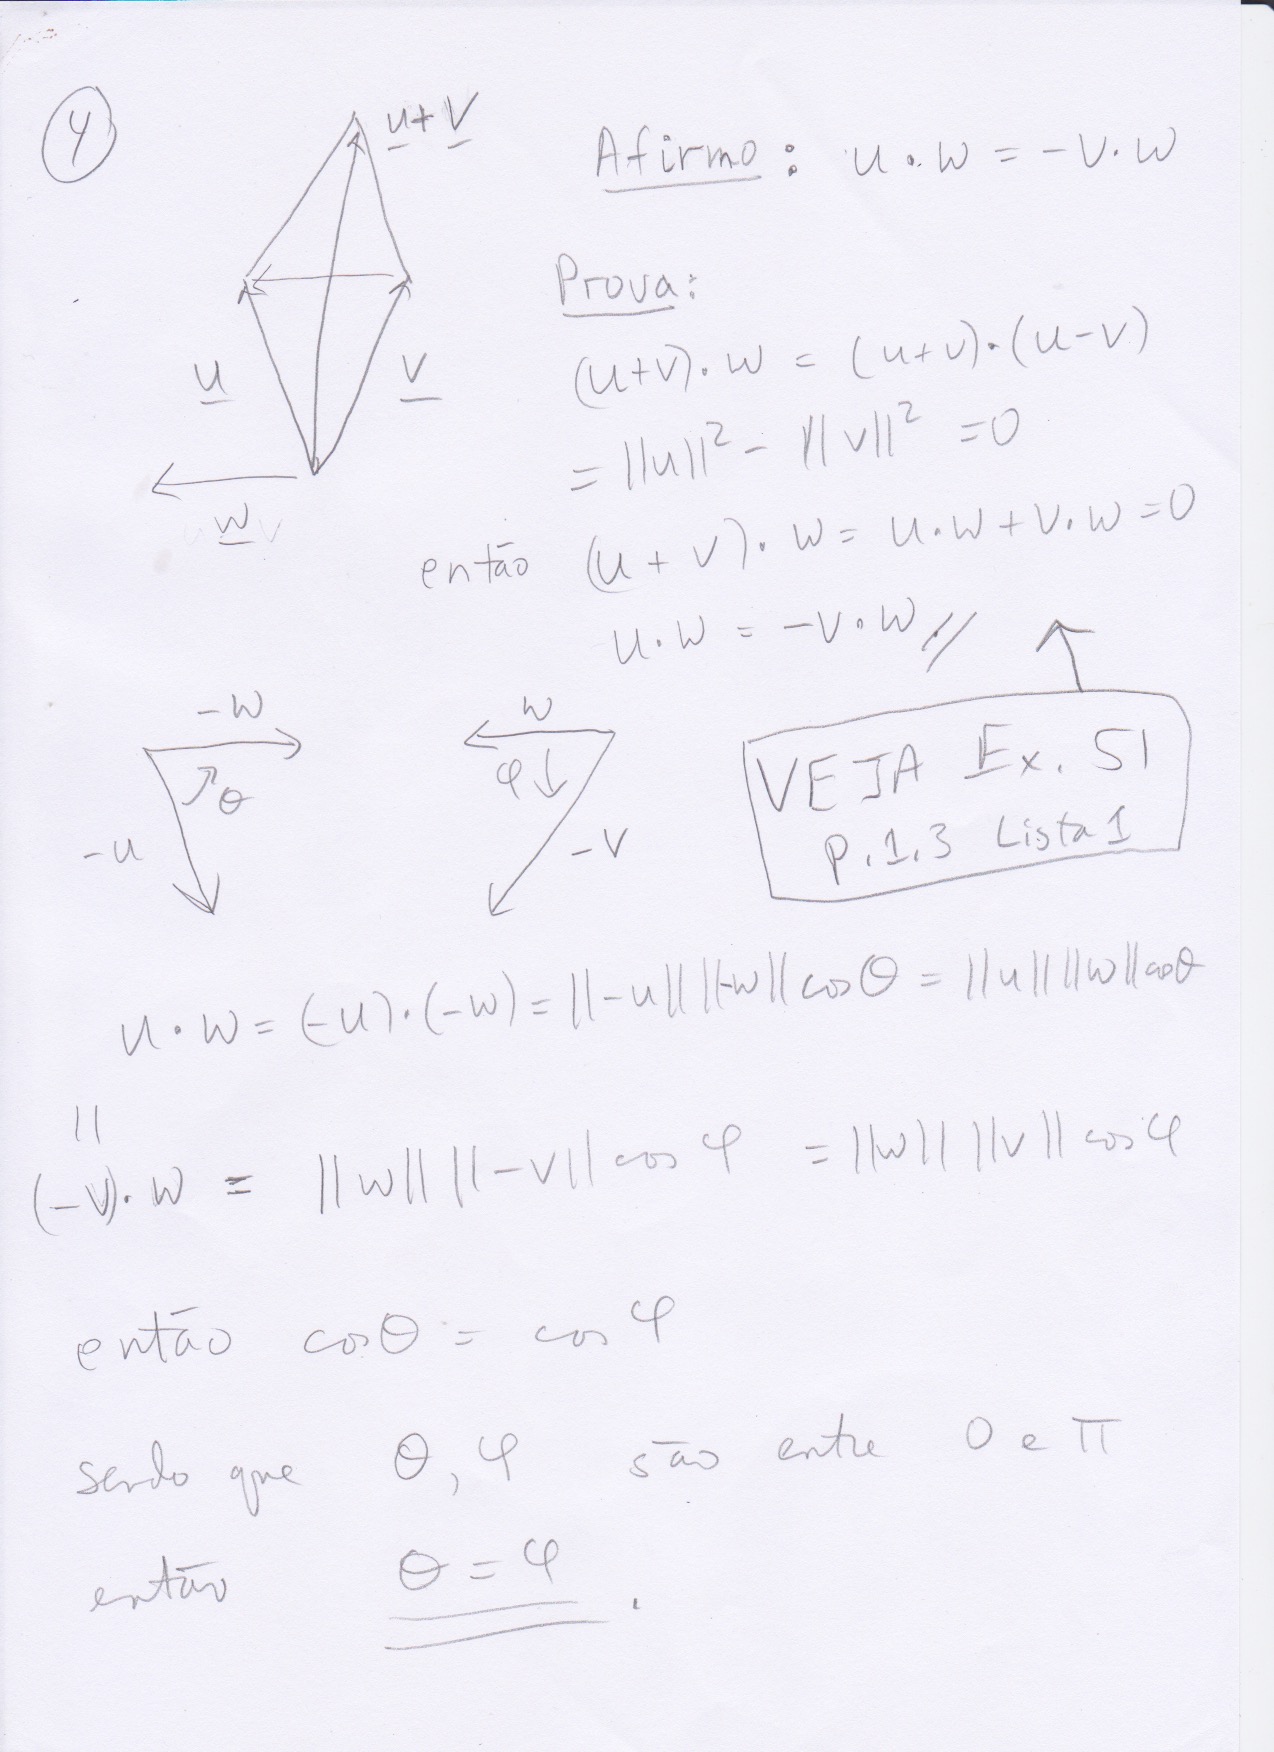 4
u+v
Afirmo: u·w = -v·w
Prova:
u
v
(u+v)·w = (u+v)·(u-v)
= ||u||² - ||v||² = 0
w
então (u+v)·w = u·w + v·w = 0
u·w = -v·w //
-w
θ
-u
w
φ
-v
VEJA Ex. 51
P.1.3 Lista 1
u·w = (-u)·(-w) = ||-u|| ||-w|| cos θ = ||u|| ||w|| cos θ
||
(-v)·w = ||w|| ||-v|| cos φ = ||w|| ||v|| cos φ
então cos θ = cos φ
sendo que θ, φ são entre 0 e π
então θ = φ.